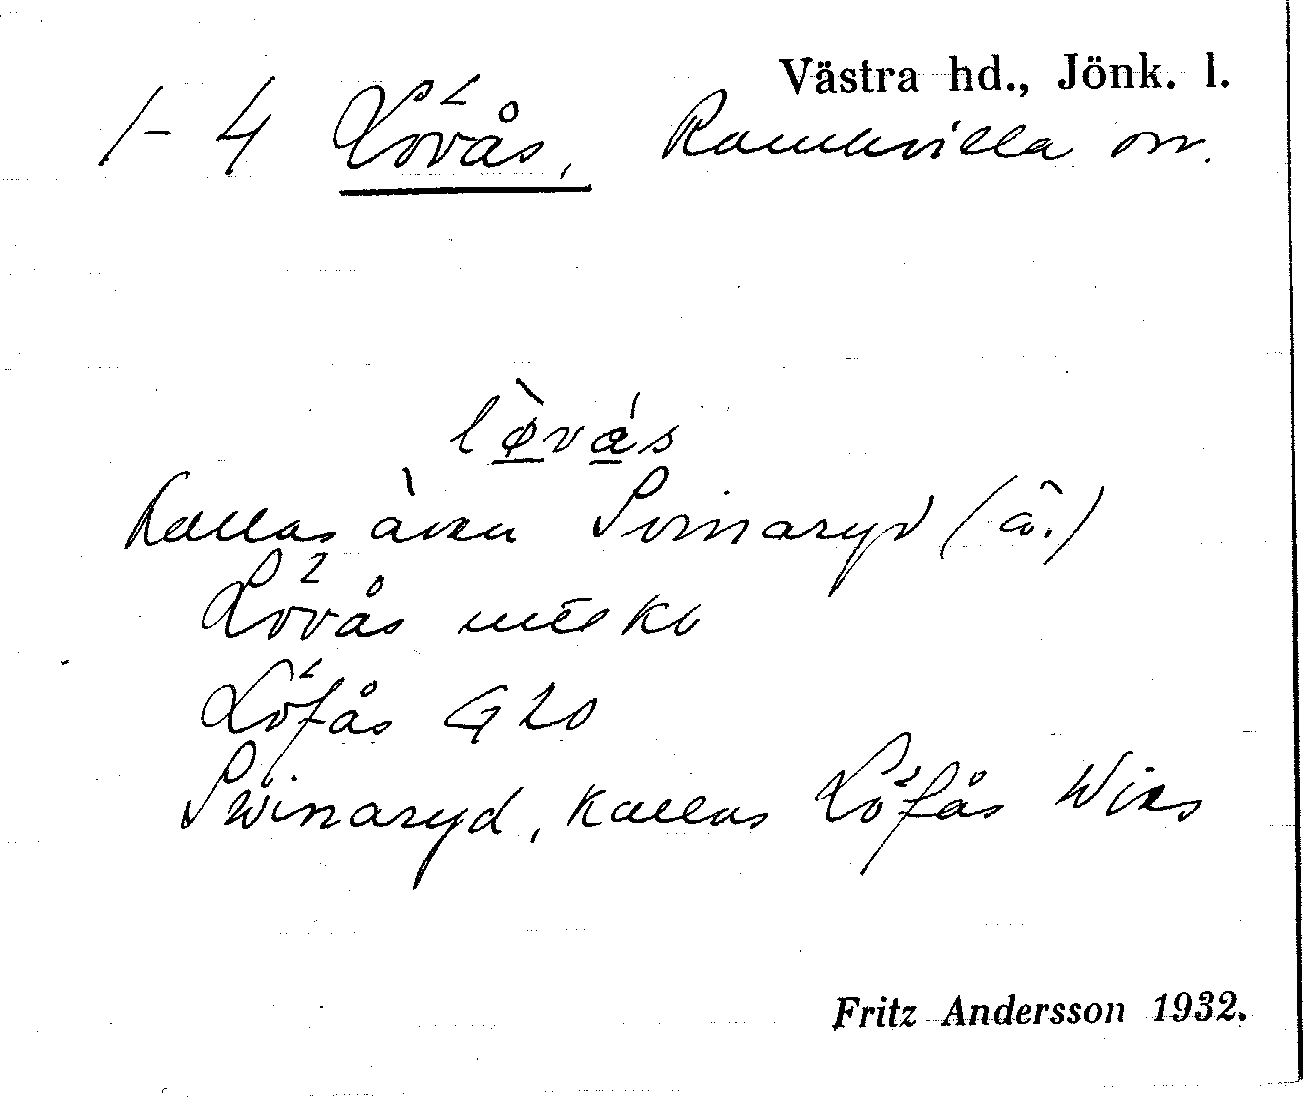 Västra hd., Jönk. l.
1-4 Lövås. Ramkvilla sn.
lø̀vás
Kallas även Svinaryd (ä.)
Lövås
Löfås G 20
Swinaryd, kallas Löfås Wies
Fritz Andersson 1932.